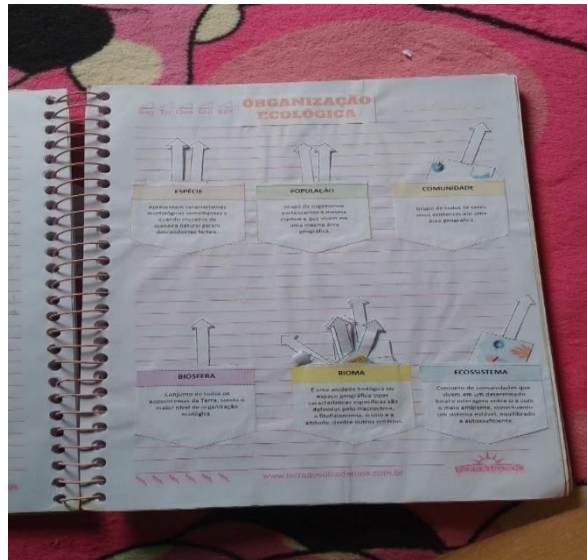 ORGANIZAÇÃO
ECOLÓGICA
Seg Ter Qua Qui Sex
ESPÉCIE
Apresentam características
morfológicas semelhantes e
quando cruzados de
maneira natural geram
descendentes férteis.
POPULAÇÃO
Grupo de organismos
pertencentes à mesma
espécie e que vivem em
uma mesma área
geográfica.
COMUNIDADE
Grupo de todos os seres
vivos existentes em uma
área geográfica.
BIOSFERA
Conjunto de todos os
ecossistemas da Terra, sendo o
maior nível de organização
ecológica.
BIOMA
É uma unidade biológica ou
espaço geográfico cujas
características específicas são
definidas pelo macroclima,
a fitofisionomia, o solo e a
altitude, dentre outros critérios.
ECOSSISTEMA
Conjunto de comunidades que
vivem em um determinado
local e interagem entre si e com
o meio ambiente, constituindo
um sistema estável, equilibrado
e autossuficiente.